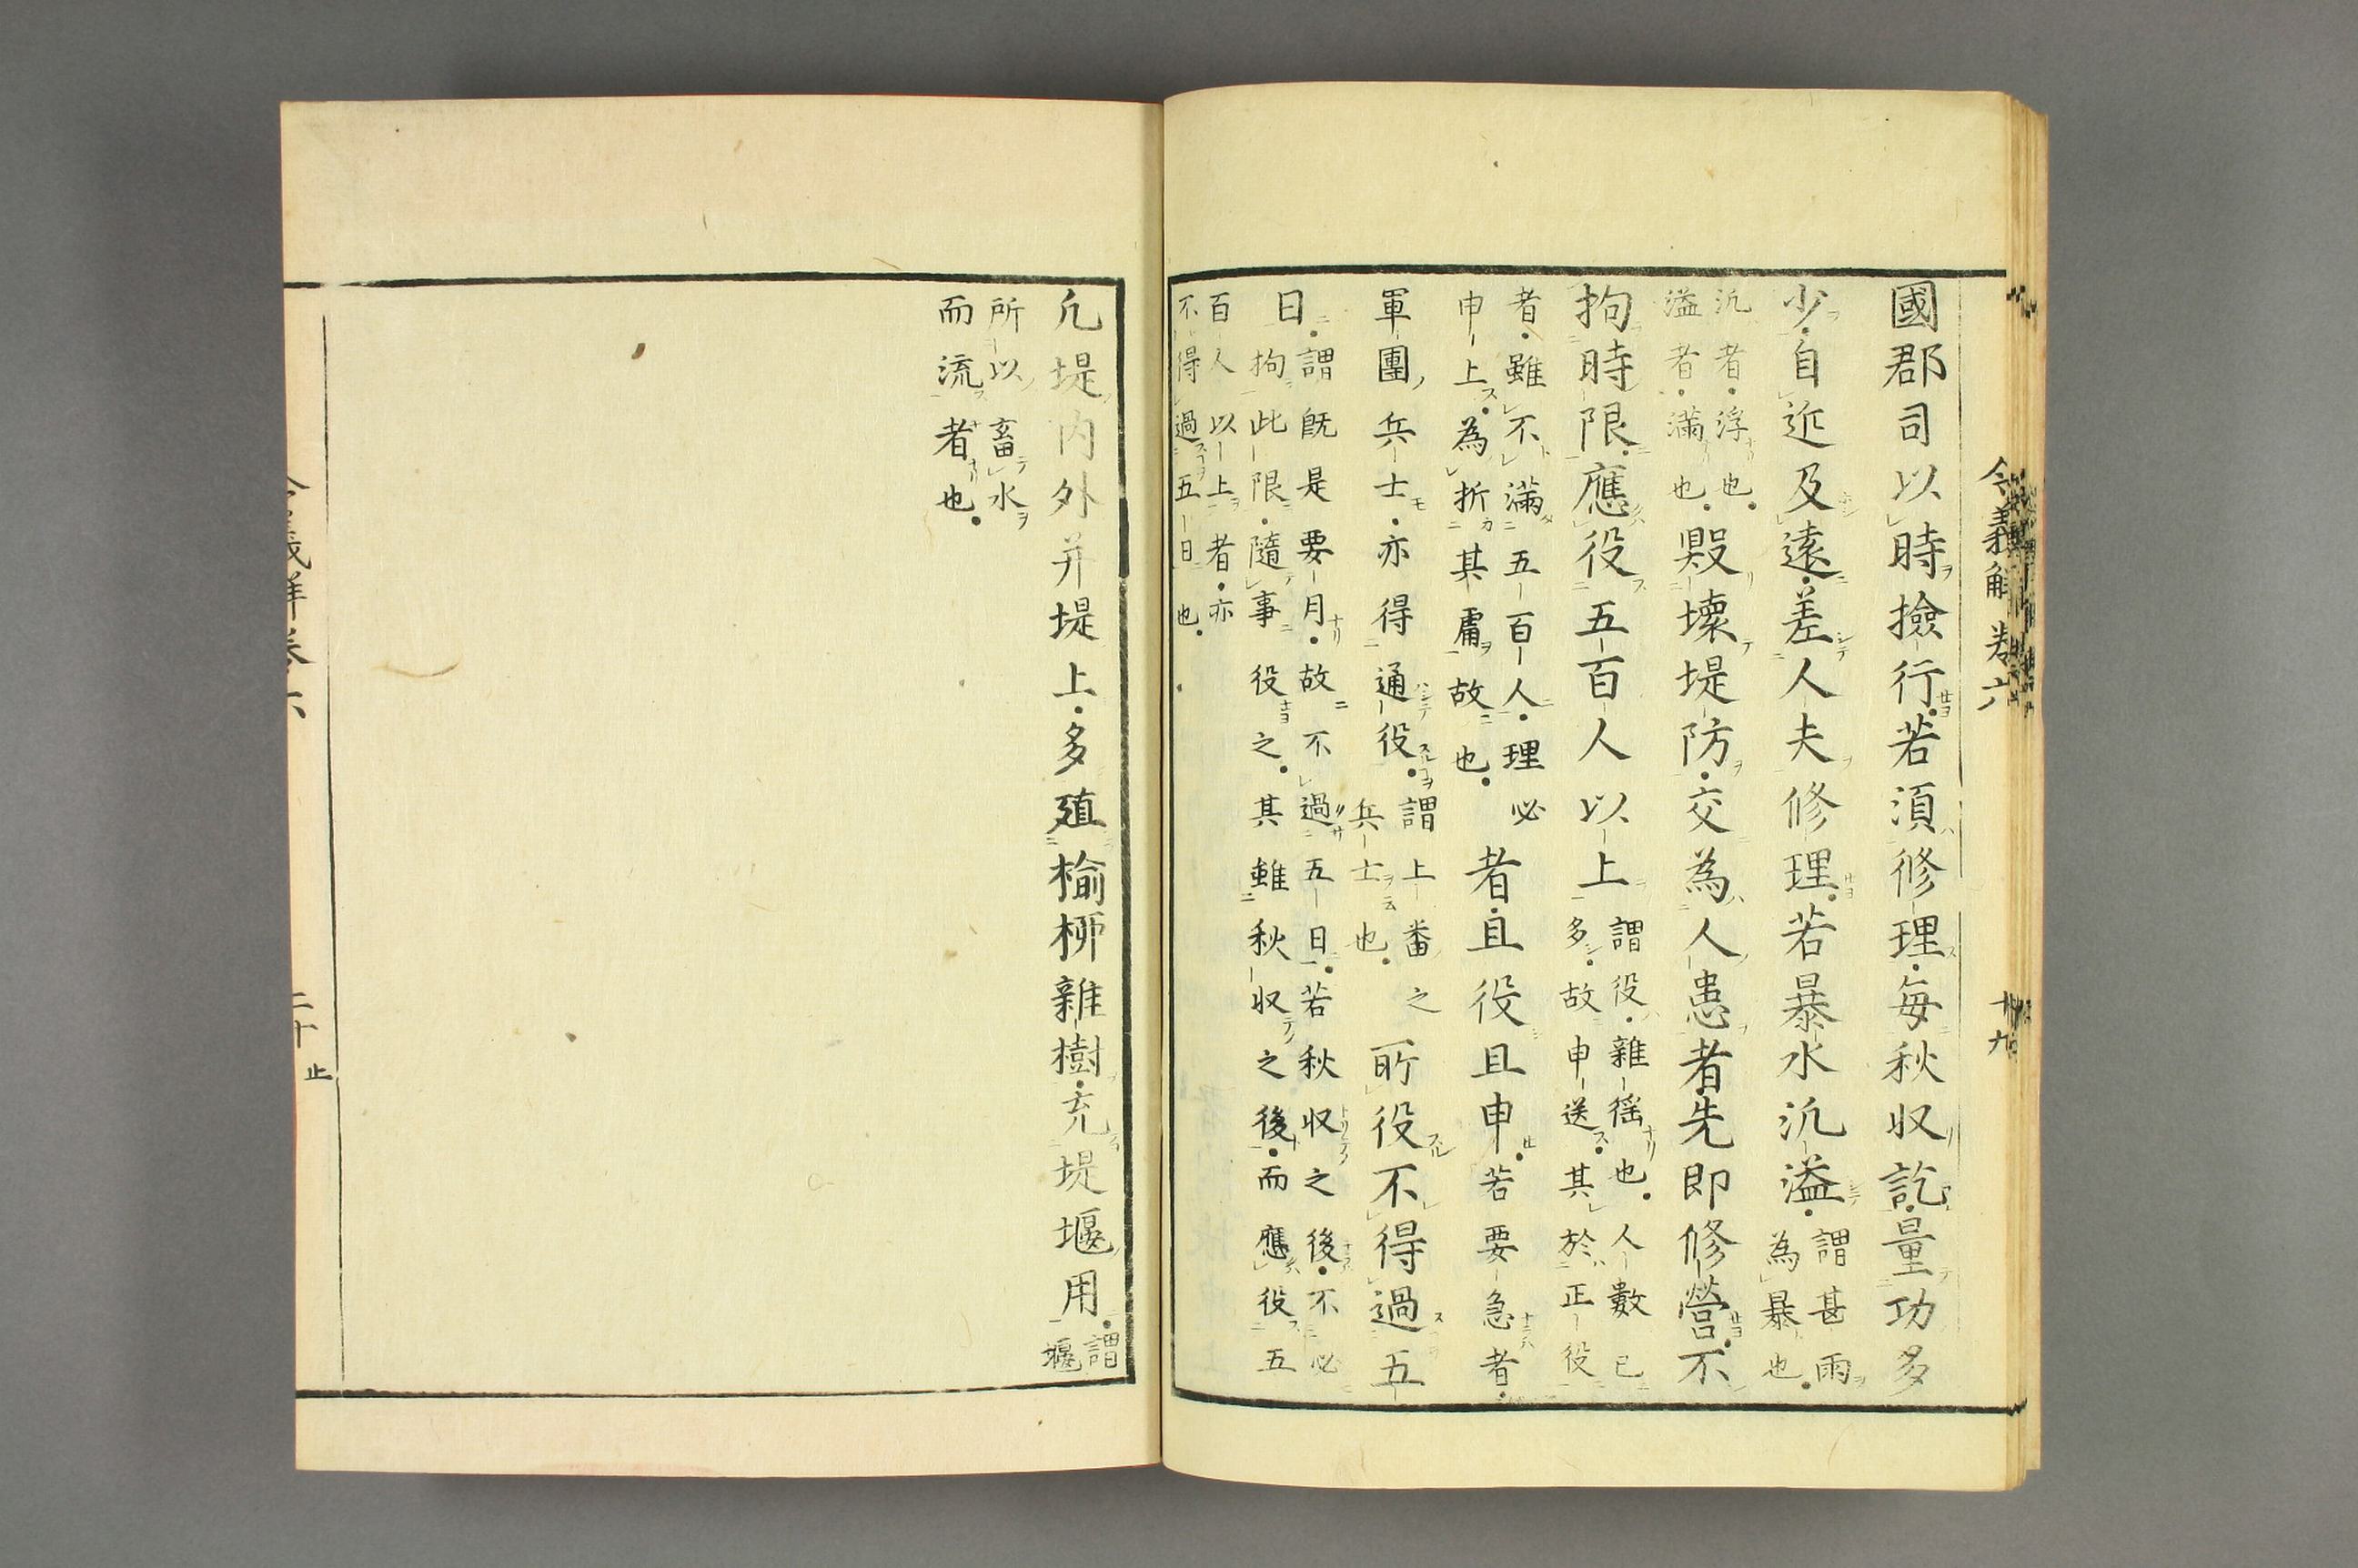 令義解卷六　十九
國郡司以時撿行若須修理每秋収訖量功多
少自近及遠差人夫修理若暴水汎溢謂甚雨為暴也
汎者浮也溢者滿也毀壞堤防交為人患者先即修營不
拘時限應役五百人以上謂役雜徭也人數已多故申送其於正役
者雖不滿五百人理必申上為折其庸故也者且役且申若要急者
軍團兵士亦得通役謂上番之兵士云也所役不得過五
日謂既是要月故不過五日若秋収之後不必拘此限隨事役之其雖秋収之後而應役五
百人以上者亦不得過五日也
凡堤内外并堤上多殖榆柳雜樹充堤堰用謂堰
所以畜水而流者也
令義解卷六　二十止